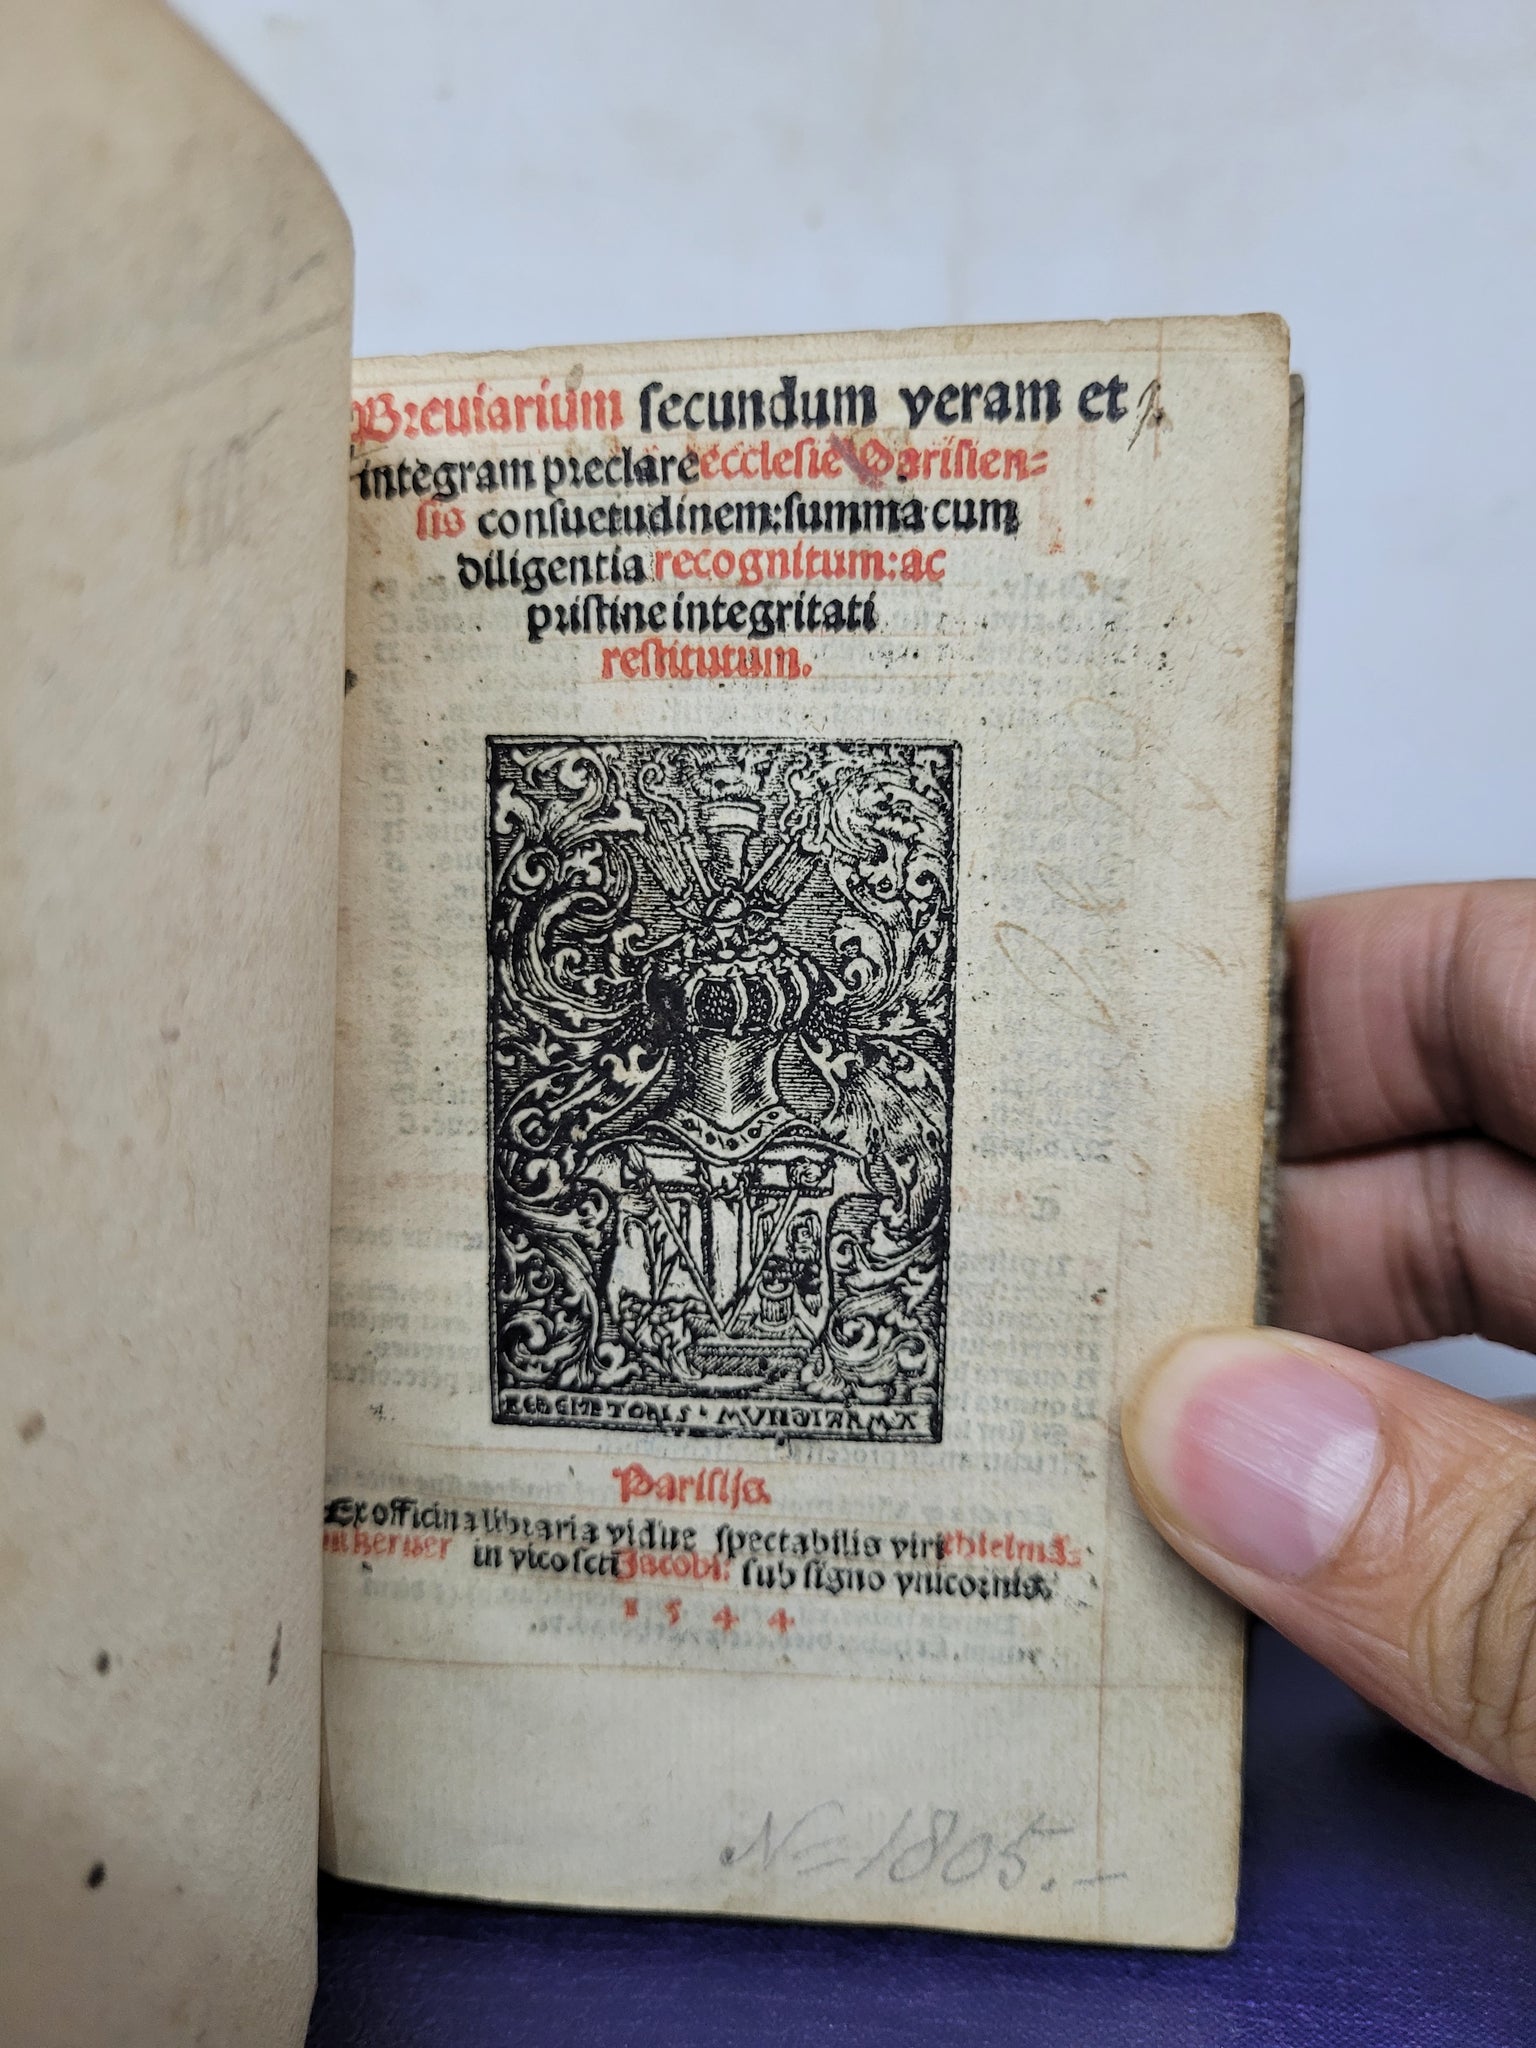 Breuiarium secundum veram et
integram preclare ecclesie Parisien=
sis consuetudinem: summa cum
diligentia recognitum: ac
pristine integritati
restitutum.
REDEMPTORIS · MUNDI ARMA
Parisijs.
Ex officina libraria vidue spectabilis viri thielmã=
ni keruer in vico scti Jacobi: sub signo vnicornis.
1 5 4 4
N= 1805.-